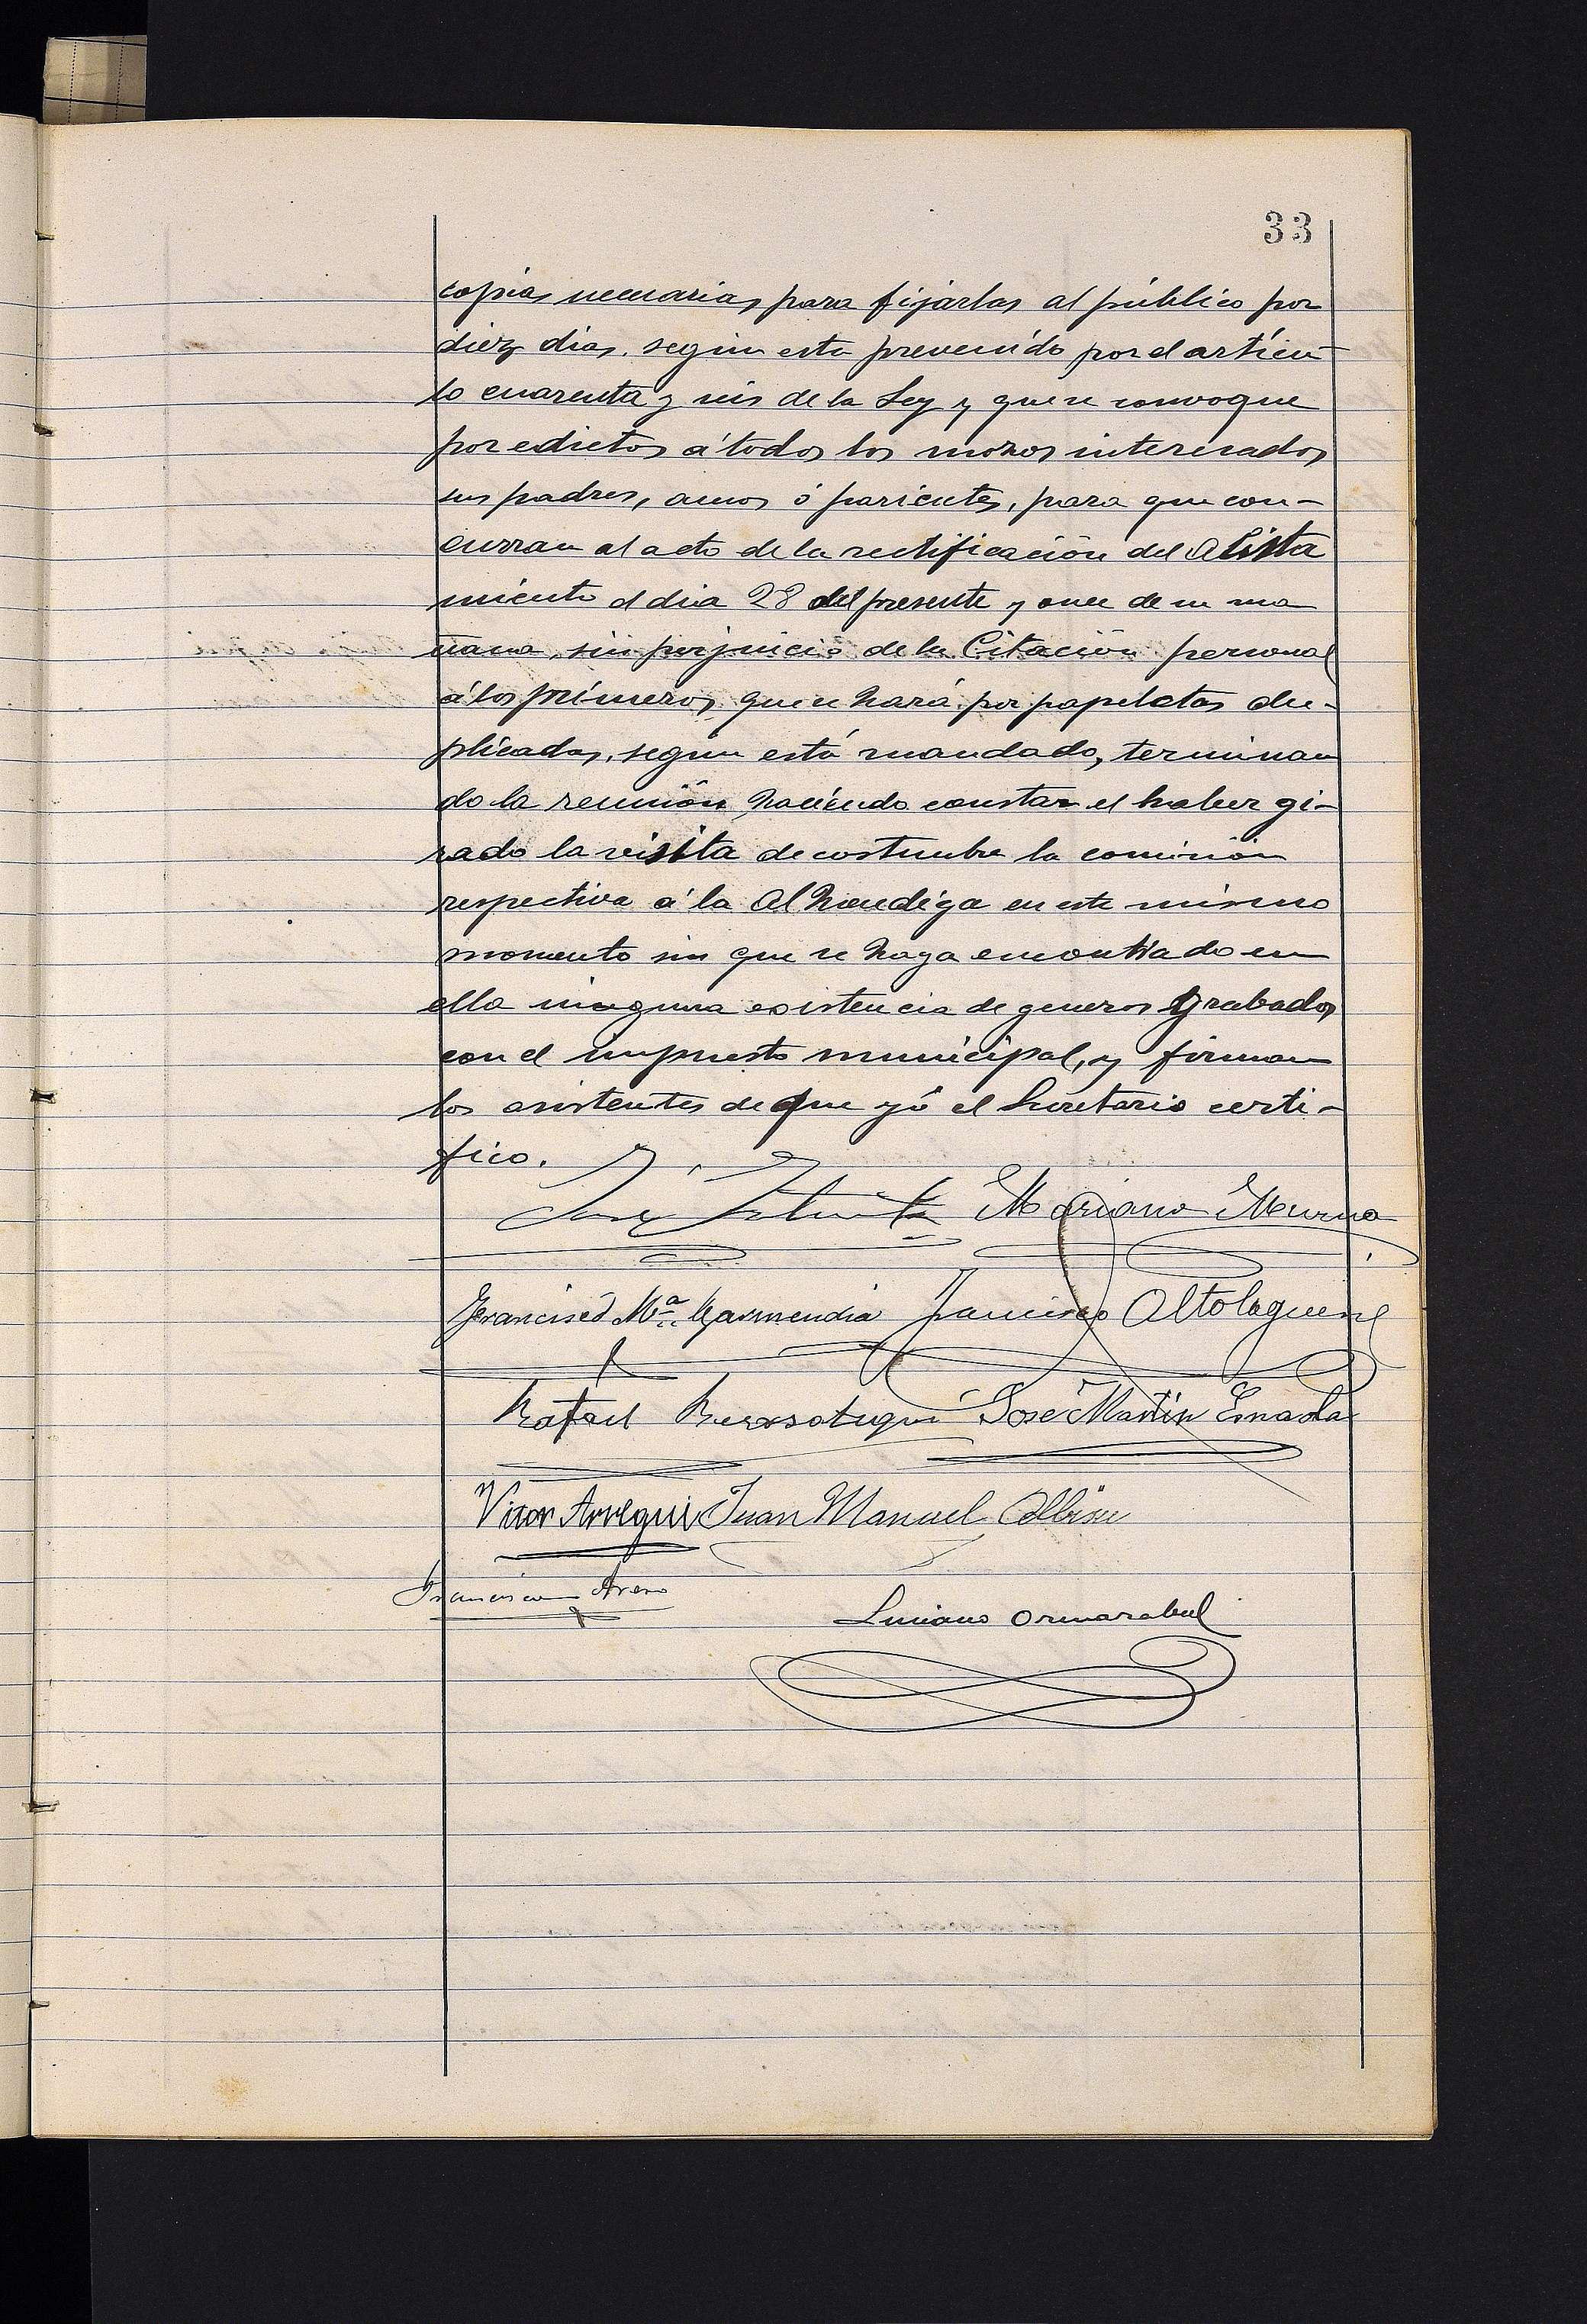 33
copias necesarias para fijarlas al público por
diez dias, segun esta prevenido por el artícu
lo cuarenta y seis de la Ley y que se convoque
por edictos á todos los mozos interesados
sus padres, amos ó parientes, para que con-
curran al acto de la rectificación del alista
miento el dia 28 del presente y once de su ma
ñana, sin perjuicio de la Citación personal
á los primeros, que se hará por papeletas du-
plicadas, según está mandado, terminan
do la reunión, haciendo constar el haber gi-
rado la visita de costumbre la comisión
respectiva á la Alhondiga en este mismo
momento sin que se haya encontrado en
ella ninguna existencia de generos grabados
con el impuesto municipal, y firman
los asistentes de que yó el Secretario certi-
fico.
José Mariano Murua
Francisco Mª Garmendia Francisco Altolaguirre
Rafael José Martin
Victor Arregui Juan Manuel Albisu
Francisco
Luciano Ormazabal